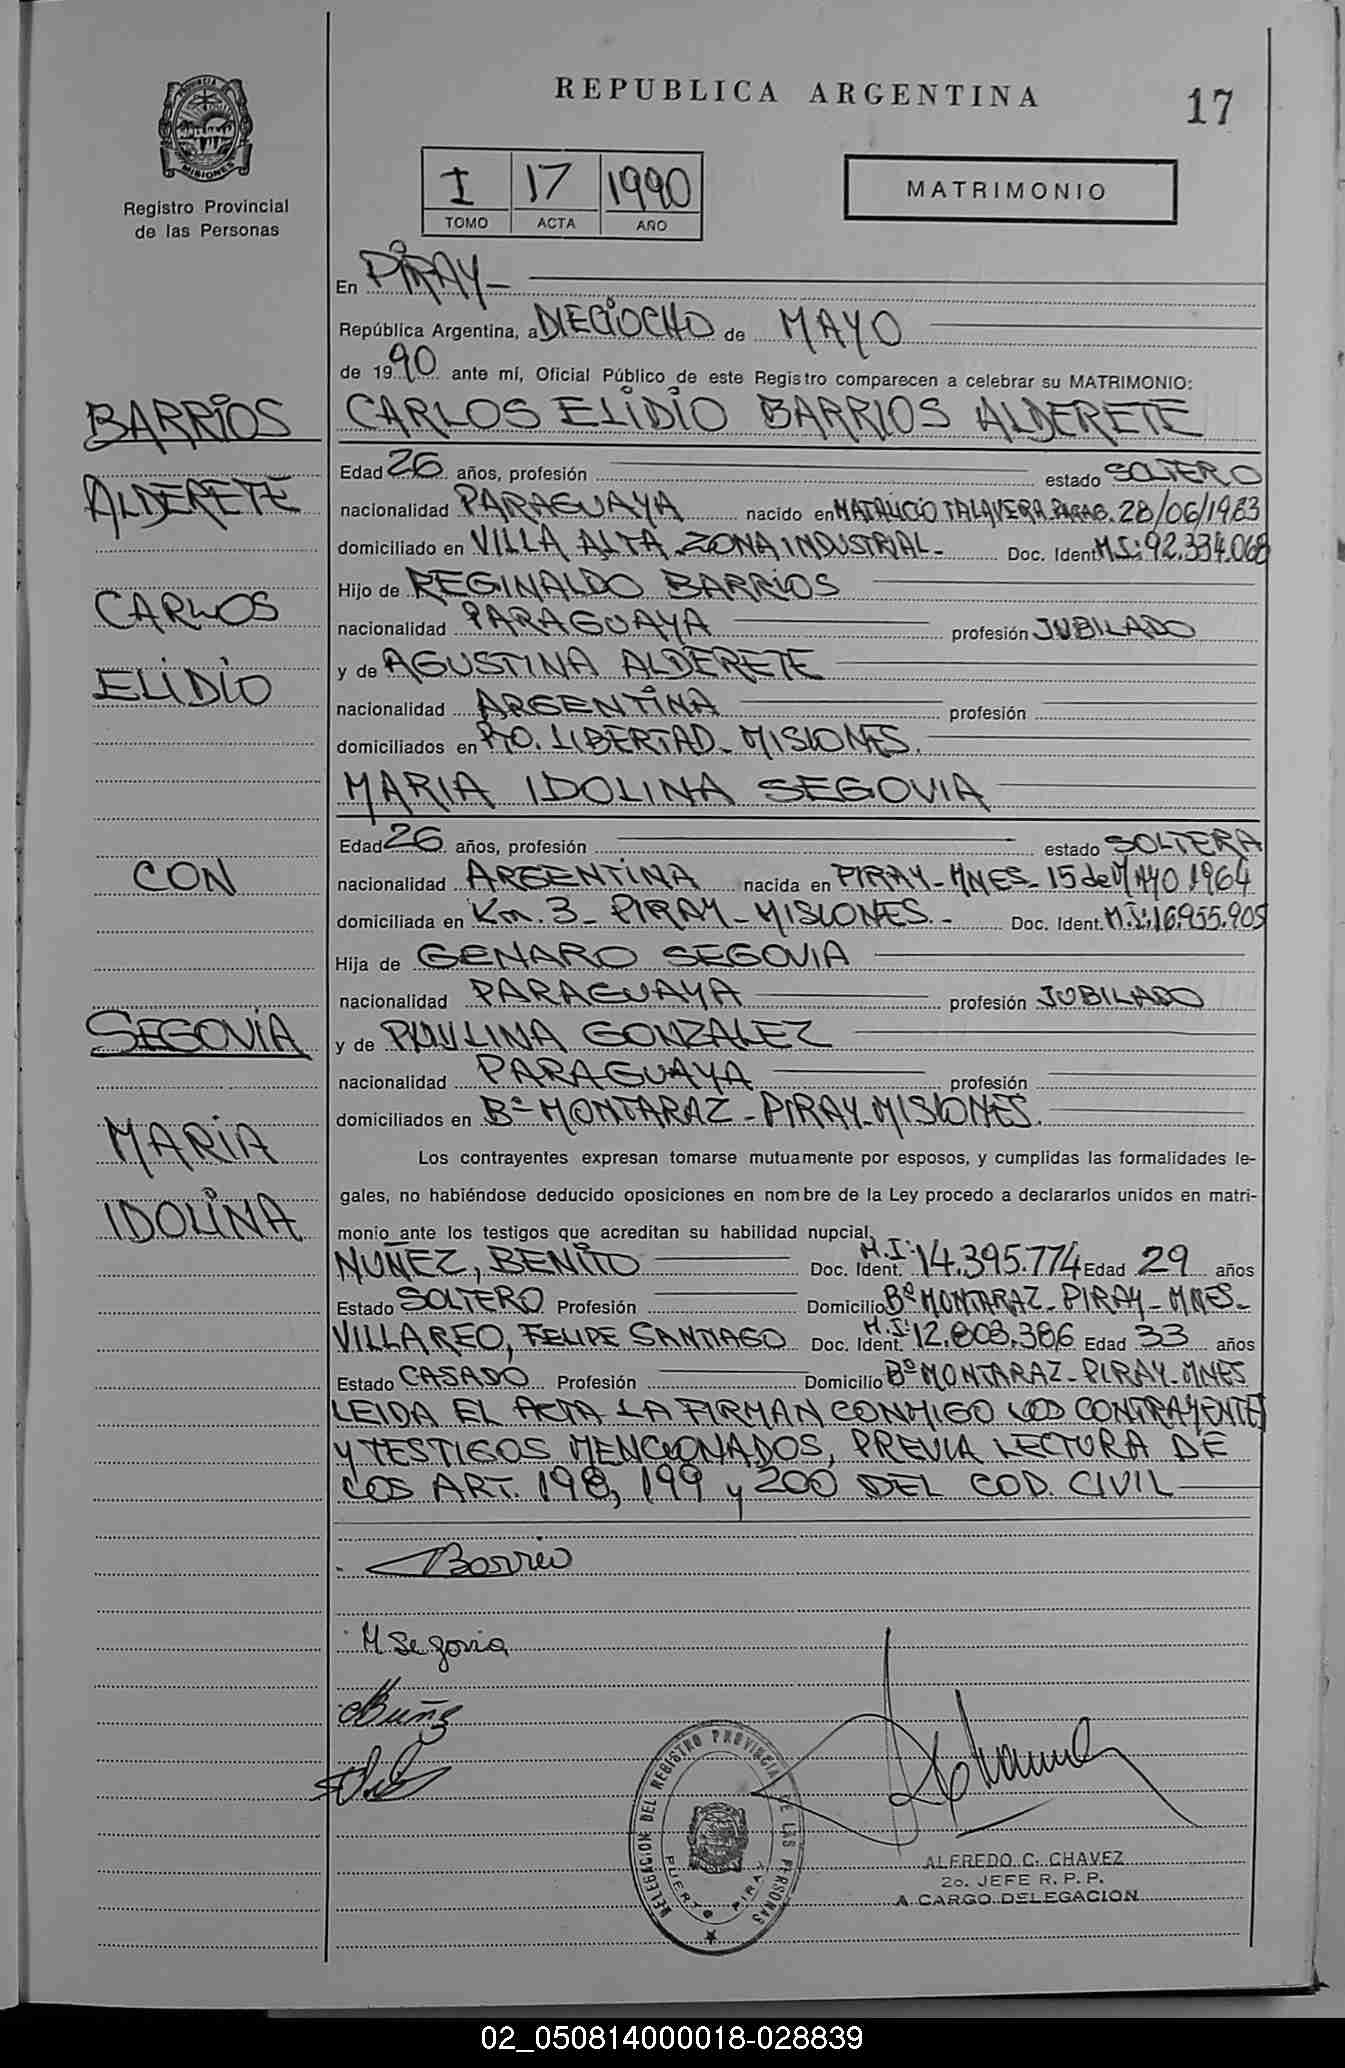 REPUBLICA ARGENTINA
17
PROVINCIA DE MISIONES
Registro Provincial
de las Personas
I 17 1990
TOMO ACTA AÑO
MATRIMONIO
En PIRAY-
República Argentina, a DIECIOCHO de MAYO
de 1990 ante mí, Oficial Público de este Registro comparecen a celebrar su MATRIMONIO:
BARRIOS
ALDERETE
CARLOS
ELIDIO
CON
SEGOVIA
MARIA
IDOLINA
CARLOS ELIDIO BARRIOS ALDERETE
Edad 26 años, profesión estado SOLTERO
nacionalidad PARAGUAYA nacido en TALAVERA PARAG. 28/06/1983
domiciliado en VILLA ALTA ZONA INDUSTRIAL- Doc. Ident. M.I: 92.334.068
Hijo de REGINALDO BARRIOS
nacionalidad PARAGUAYA profesión JUBILADO
y de AGUSTINA ALDERETE
nacionalidad ARGENTINA profesión
domiciliados en PTO. LIBERTAD- MISIONES.
MARIA IDOLINA SEGOVIA
Edad 26 años, profesión estado SOLTERA
nacionalidad ARGENTINA nacida en PIRAY- MNES- 15 de MAYO 1964
domiciliada en Km. 3- PIRAY- MISIONES.- Doc. Ident. M.I: 16.955.905
Hija de GENARO SEGOVIA
nacionalidad PARAGUAYA profesión JUBILADO
y de PAULINA GONZALEZ
nacionalidad PARAGUAYA profesión
domiciliados en Bº MONTARAZ- PIRAY- MISIONES.
Los contrayentes expresan tomarse mutuamente por esposos, y cumplidas las formalidades le-
gales, no habiéndose deducido oposiciones en nombre de la Ley procedo a declararlos unidos en matri-
monio ante los testigos que acreditan su habilidad nupcial.
NUÑEZ, BENITO Doc. Ident. M.I: 14.395.774 Edad 29 años
Estado SOLTERO Profesión Domicilio Bº MONTARAZ- PIRAY- MNES-
VILLAREO, FELIPE SANTIAGO Doc. Ident. M.I: 12.803.386 Edad 33 años
Estado CASADO Profesión Domicilio Bº MONTARAZ- PIRAY- MNES
LEIDA EL ACTA LA FIRMAN CONMIGO LOS CONTRAYENTE
Y TESTIGOS MENCIONADOS, PREVIA LECTURA DE
LOS ART. 198, 199 y 200 DEL COD. CIVIL
Barrio
M Segovia
DELEGACION DEL REGISTRO PROVINCIAL DE LAS PERSONAS
PUERTO PIRAY
ALFREDO C. CHAVEZ
2o. JEFE R. P. P.
A CARGO DELEGACION
02_050814000018-028839